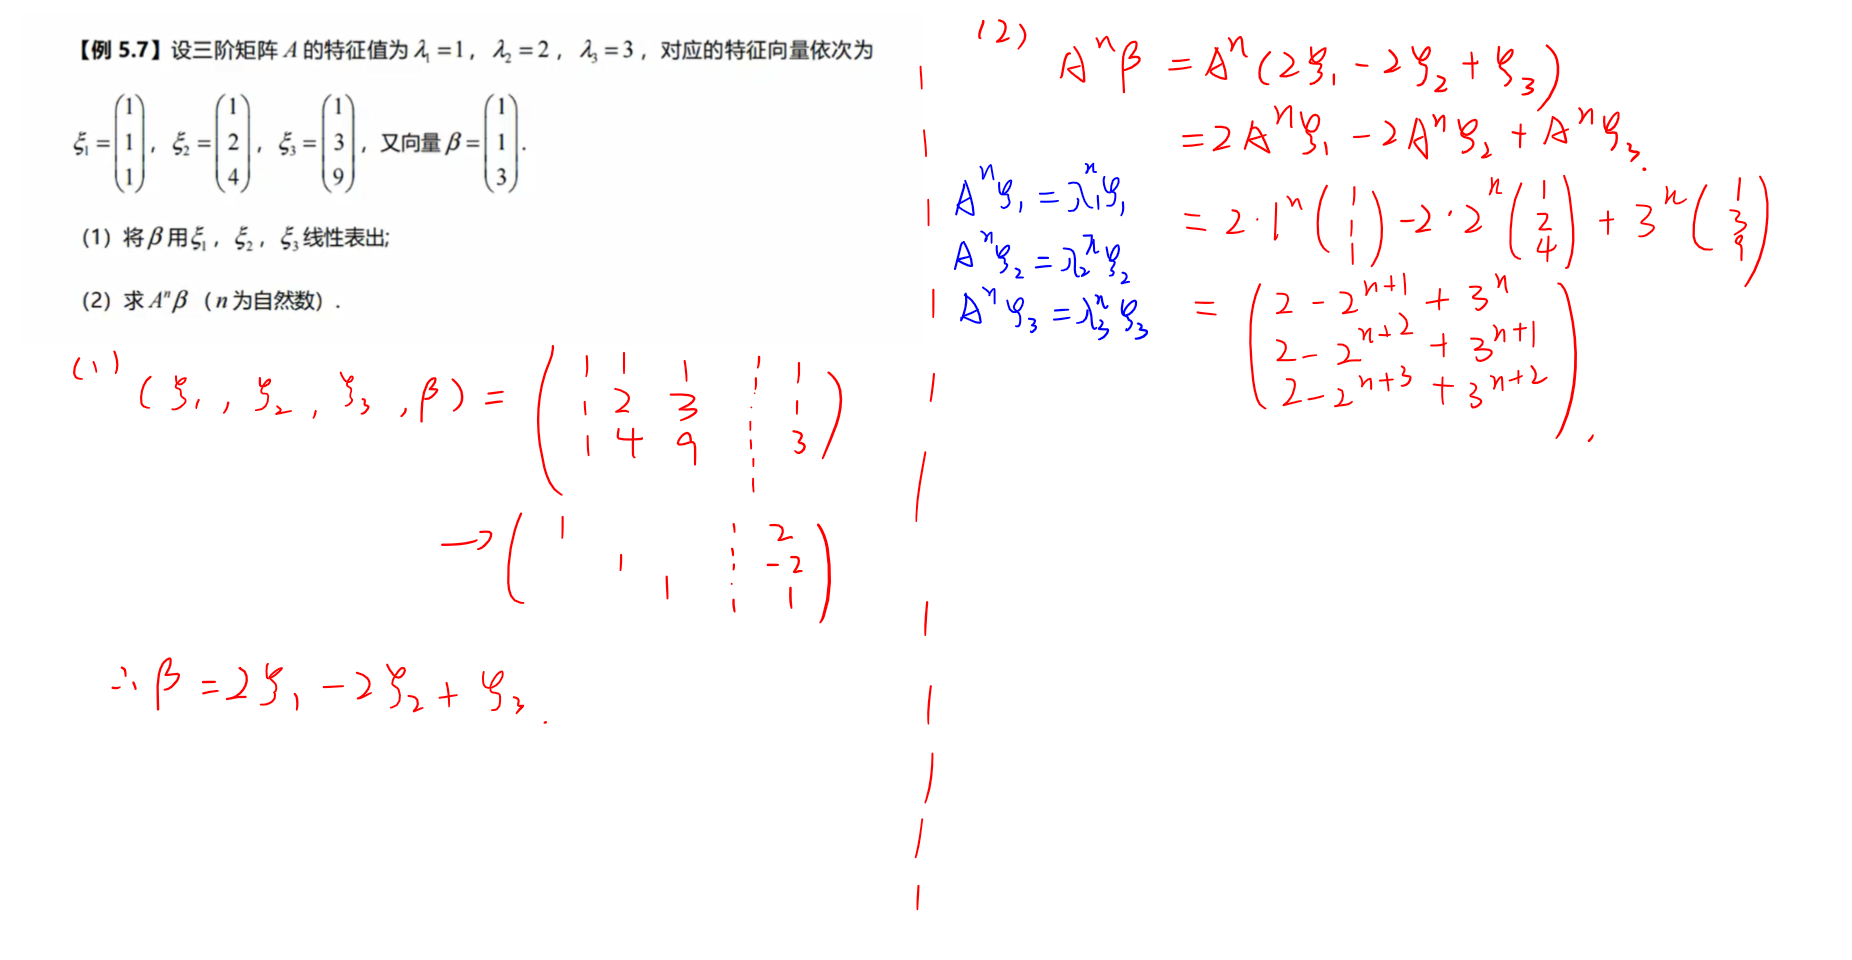 【例 5.7】设三阶矩阵 A 的特征值为 λ₁ = 1， λ₂ = 2， λ₃ = 3， 对应的特征向量依次为
ξ₁ = (1 1 1)， ξ₂ = (1 2 4)， ξ₃ = (1 3 9)， 又向量 β = (1 1 3).
(1) 将 β 用 ξ₁， ξ₂， ξ₃ 线性表出;
(2) 求 Aⁿβ （n 为自然数）.
(1)
(ξ₁, ξ₂, ξ₃, β) = ( 1 1 1 ┆ 1
1 2 3 ┆ 1
1 4 9 ┆ 3 )
→ ( 1 ┆ 2
1 ┆ -2
1 ┆ 1 )
∴ β = 2ξ₁ - 2ξ₂ + ξ₃.
(2)
Aⁿβ = Aⁿ(2ξ₁ - 2ξ₂ + ξ₃)
= 2Aⁿξ₁ - 2Aⁿξ₂ + Aⁿξ₃.
Aⁿξ₁ = λ₁ⁿξ₁
Aⁿξ₂ = λ₂ⁿξ₂
Aⁿξ₃ = λ₃ⁿξ₃
= 2·1ⁿ(1 1 1) - 2·2ⁿ(1 2 4) + 3ⁿ(1 3 9)
= ( 2 - 2ⁿ⁺¹ + 3ⁿ
2 - 2ⁿ⁺² + 3ⁿ⁺¹
2 - 2ⁿ⁺³ + 3ⁿ⁺² ).